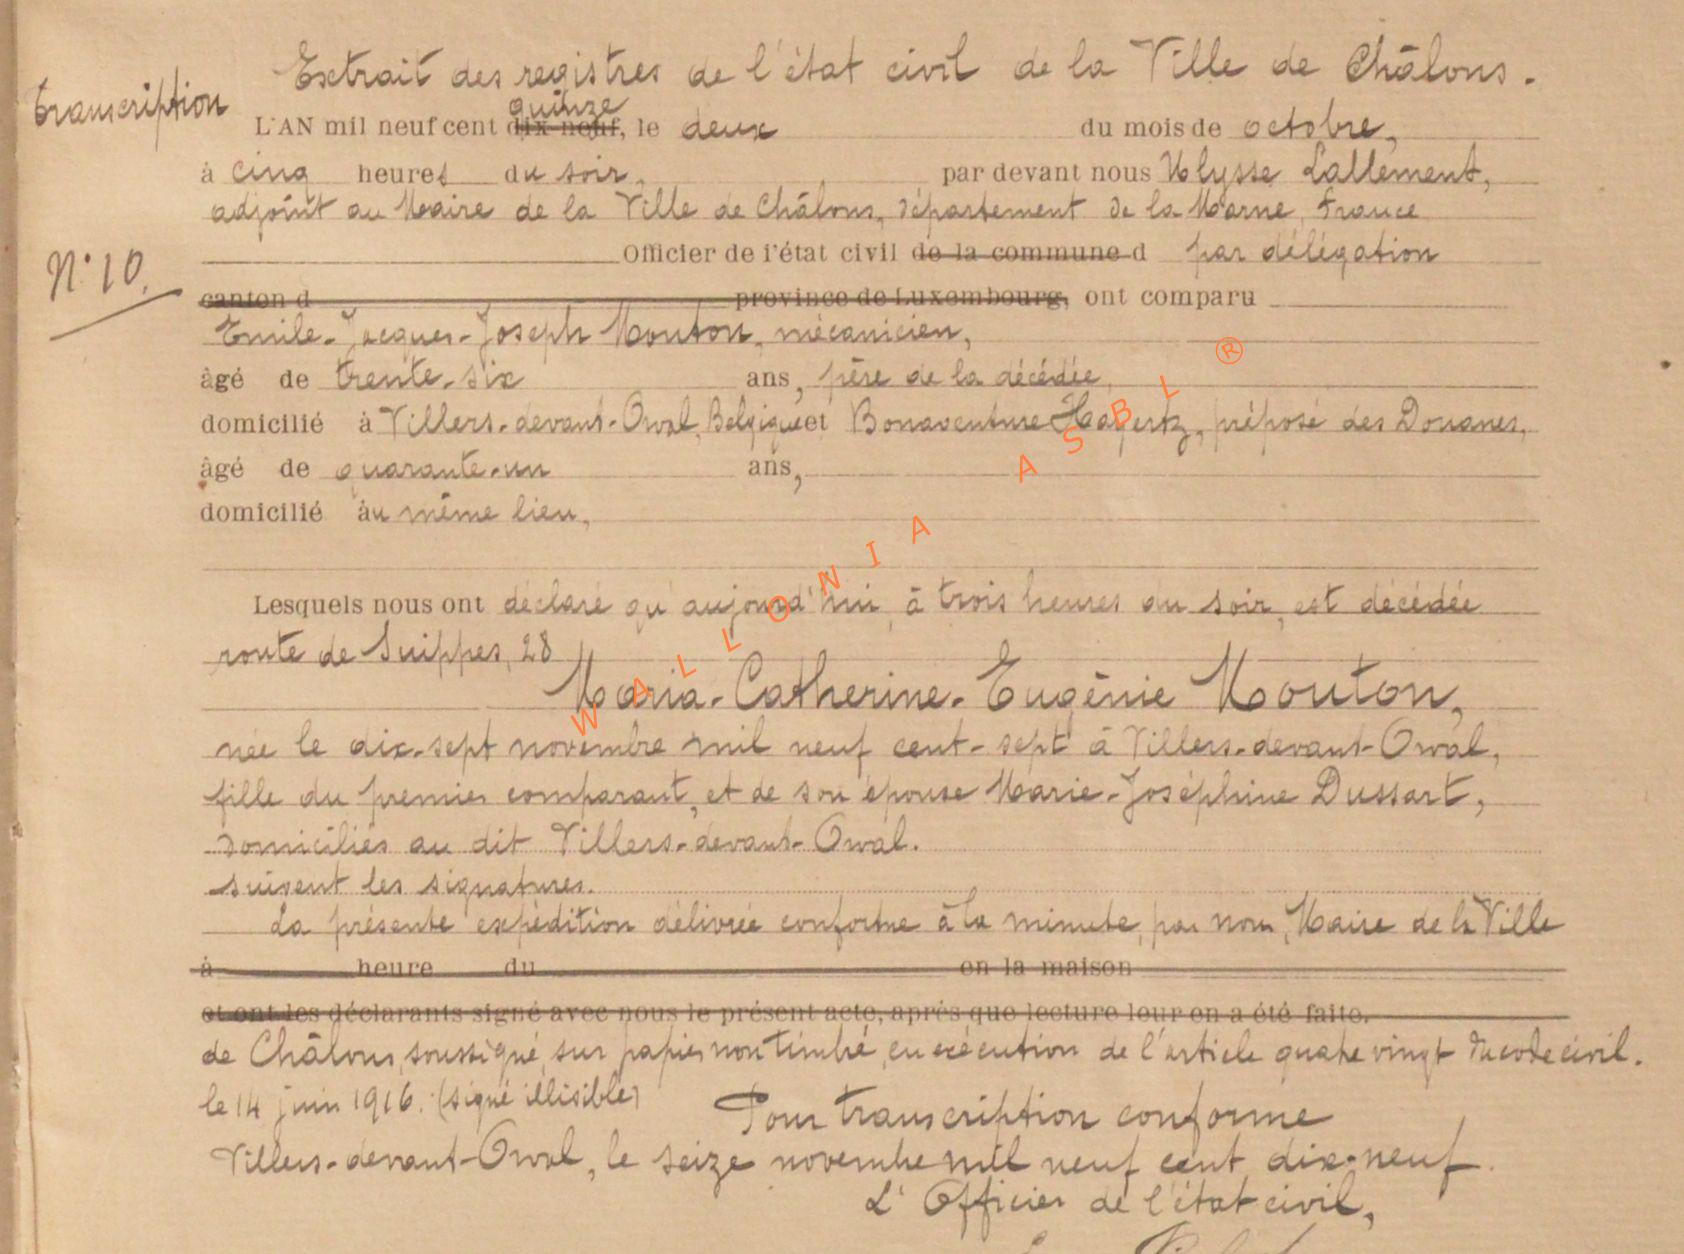 Extrait des registres de l'état civil de la Ville de Châlons.
transcription
quinze
L'AN mil neuf cent dix-neuf, le deux du mois de octobre,
à cinq heures du soir, par devant nous Ulysse Lallement,
adjoint au Maire de la Ville de Châlons, département de la Marne, France
N° 10.
Officier de l'état civil de la commune d par délégation
canton d province de Luxembourg, ont comparu
Emile-Jacques-Joseph Mouton, mécanicien,
âgé de trente-six ans, père de la décédée,
domicilié à Villers-devant-Orval, Belgique et Bonaventure, préposé des Douanes,
âgé de quarante-un ans,
domicilié au même lieu,
Lesquels nous ont déclaré qu'aujourd'hui, à trois heures du soir, est décédée
route de Suippes, 28
Maria-Catherine-Eugénie Mouton,
née le dix-sept novembre mil neuf cent-sept à Villers-devant-Orval,
fille du premier comparant, et de son épouse Marie-Joséphine Dussart,
domiciliés au dit Villers-devant-Orval.
suivent les signatures.
La présente expédition délivrée conforme à la minute, par nous, Maire de la Ville
à heure du en la maison
et ont les déclarants signé avec nous le présent acte, après que lecture leur en a été faite.
de Châlons, soussigné, sur papier non timbré, en exécution de l'article quatre vingt du code civil.
le 14 juin 1916. (signé illisible)
Pour transcription conforme
Villers-devant-Orval, le seize novembre mil neuf cent dix-neuf.
L'Officier de l'état civil,
WALLONIA ASBL ®